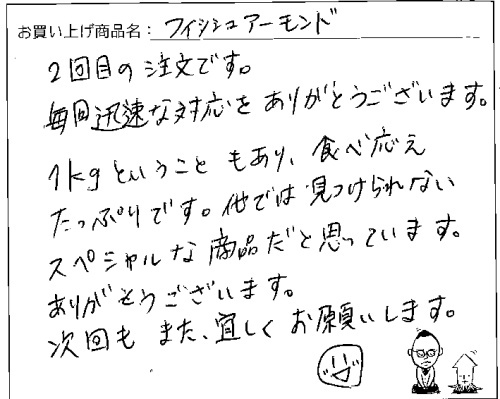 お買い上げ商品名: フィッシュアーモンド
2回目の注文です。
毎回迅速な対応をありがとうございます。
1kgということもあり、食べ応え
たっぷりです。他では見つけられない
スペシャルな商品だと思っています。
ありがとうございます。
次回もまた、宜しくお願いします。